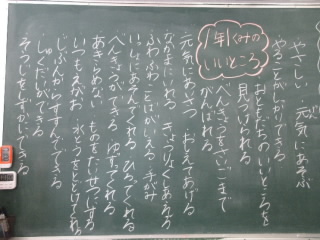 1年1くみの
いいところ
やさしい 元気にあそぶ
やることがしっかりできる
おともだちのいいところを
見つけられる
べんきょうをさいごまで
がんばれる
元気にあいさつ おしえてあげる
なかよくしてくれる きょうりょくしあえる
ふわふわことばがいえる 手がみ
いっしょにあそんでくれる ひろってくれる
べんきょうができる ゆずってくれる
あきらめない ものをたいせつにする
いつもえがお 水とうをとどけてくれる
じぶんからすすんでできる
しゅくだいができる
そうじをしずかにできる